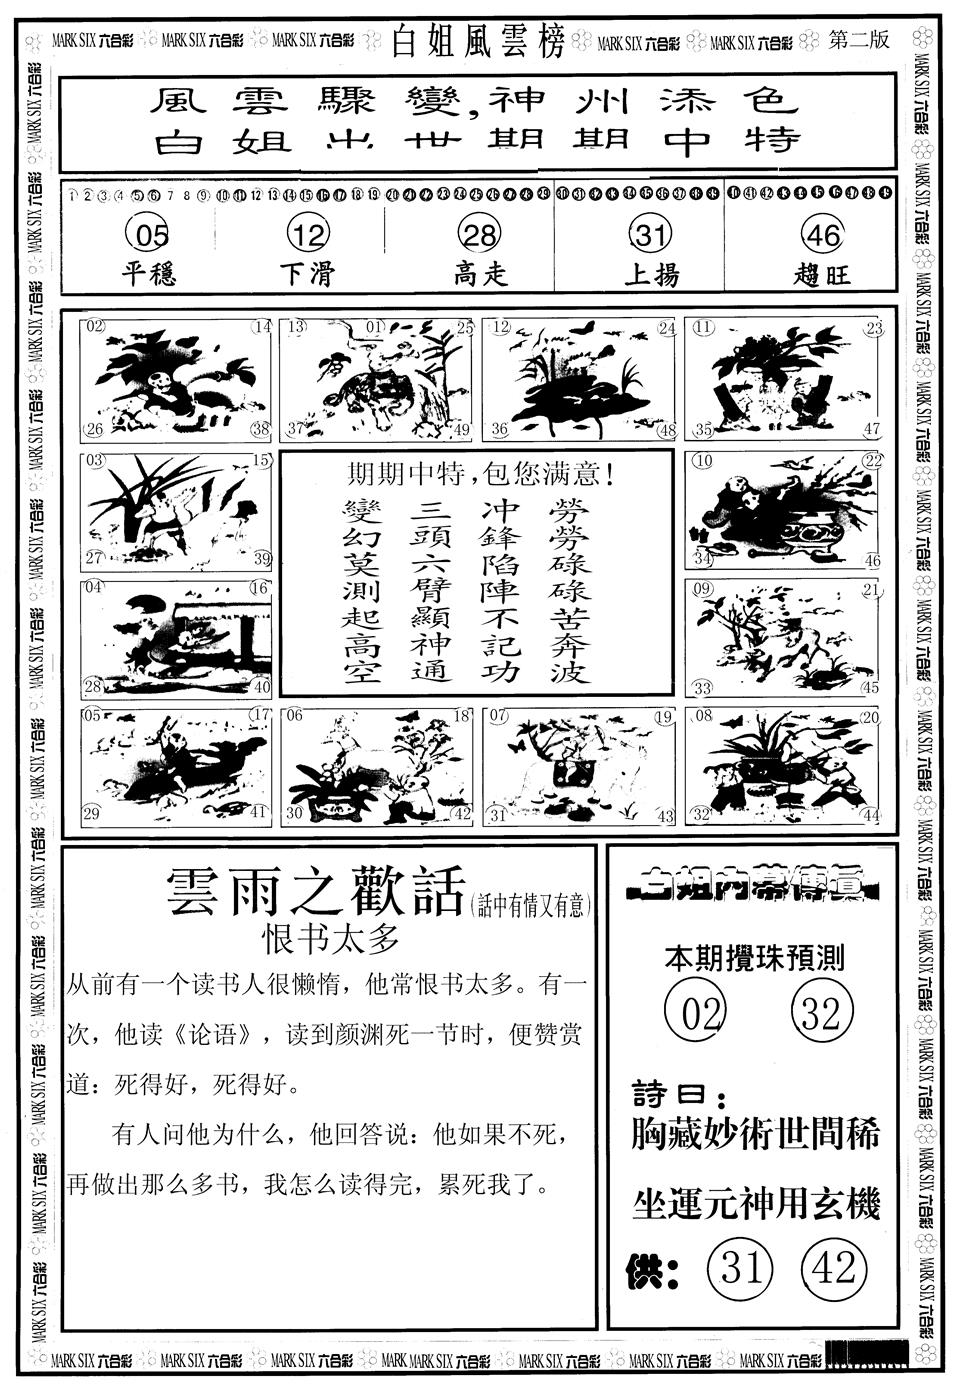 MARK SIX 六合彩 MARK SIX 六合彩 MARK SIX 六合彩 白姐風雲榜 MARK SIX 六合彩 MARK SIX 六合彩 第二版
風雲驟變,神州添色
白姐出世期期中特
1 2 3 4 5 6 7 8 9 10 11 12 13 14 15 16 17 18 19 20 21 22 23 24 25 26 27 28 29 30 31 32 33 34 35 36 37 38 39 40 41 42 43 44 45 46 47 48 49
05 12 28 31 46
平穩 下滑 高走 上揚 趨旺
02 14 13 01 25 12 24 11 23
26 38 37 49 36 48 35 47
03 15
27 39
04 16
28 40
期期中特,包您满意!
勞勞碌碌苦奔波
冲鋒陷陣不記功
三頭六臂顯神通
變幻莫測起高空
10 22
34 46
09 21
33 45
05 17 06 18 07 19 08 20
29 41 30 42 31 43 32 44
雲雨之歡話(話中有情又有意)
恨书太多
从前有一个读书人很懒惰，他常恨书太多。有一
次，他读《论语》，读到颜渊死一节时，便赞赏
道：死得好，死得好。
有人问他为什么，他回答说：他如果不死，
再做出那么多书，我怎么读得完，累死我了。
白姐内幕傳真
本期攪珠預測
02 32
詩曰：
胸藏妙術世間稀
坐運元神用玄機
供： 31 42
MARK SIX 六合彩 MARK SIX 六合彩 MARK SIX 六合彩 MARK MARK SIX 六合彩 MARK SIX 六合彩 MARK SIX 六合彩 MARK SIX 六合彩